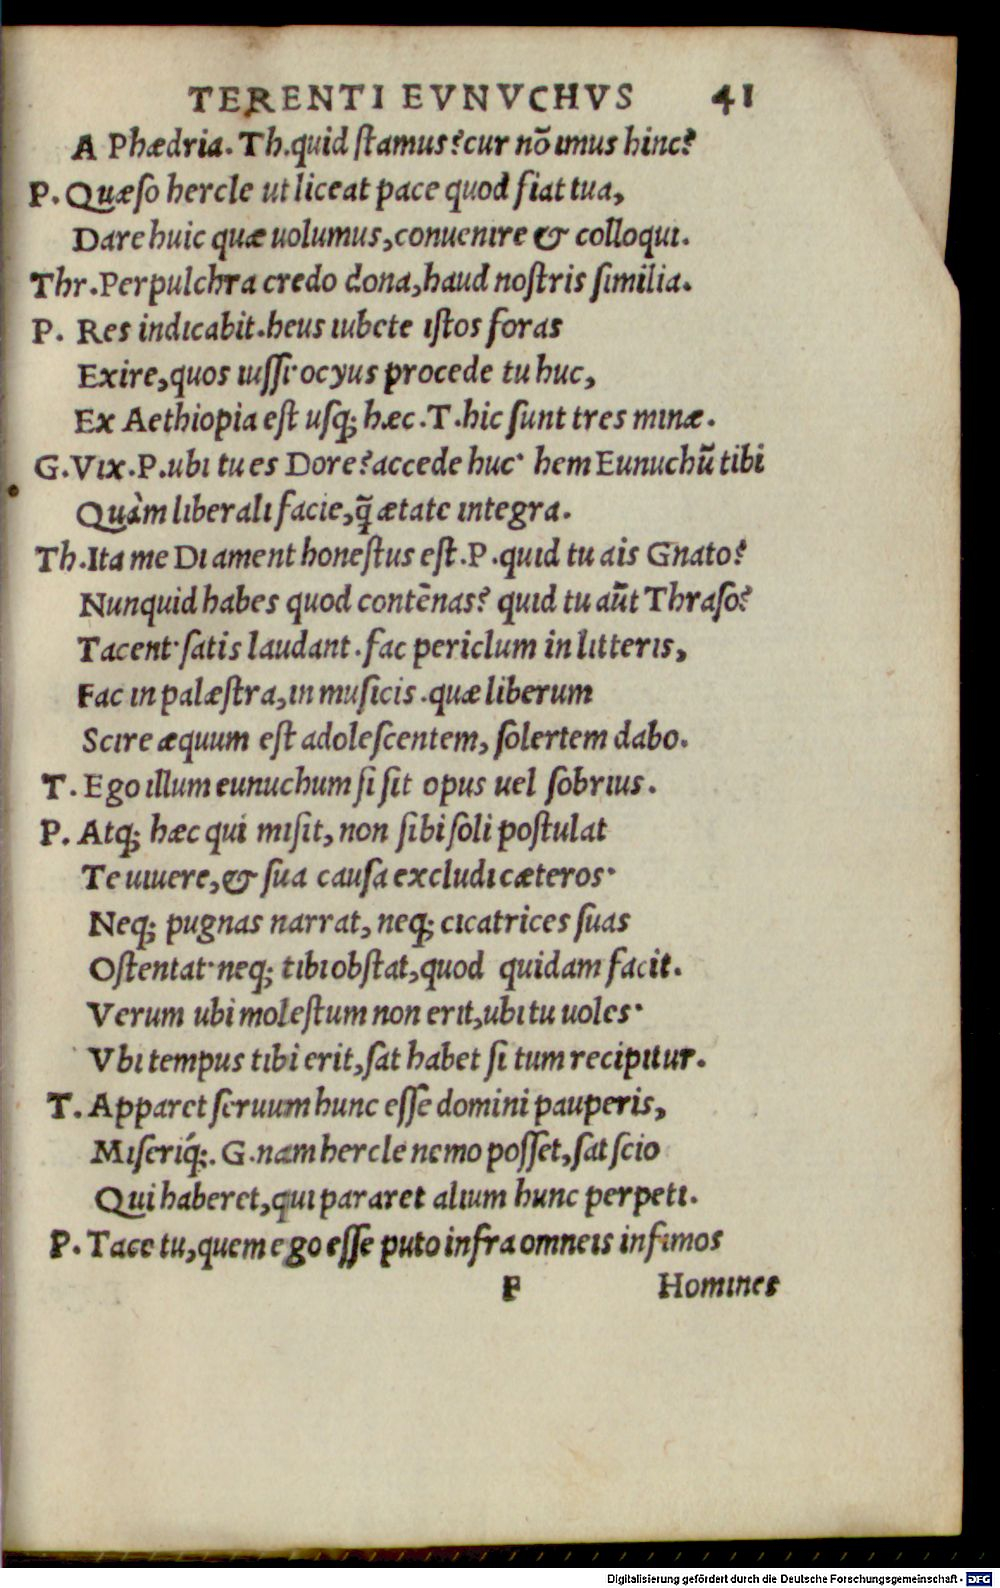 TERENTI EVNVCHVS 41
A Phædria. Th.quid ſtamus?cur nō imus hinc?
P. Quæſo hercle ut liceat pace quod fiat tua,
Dare huic quæ uolumus,conuenire & colloqui.
Thr.Perpulchra credo dona,haud noſtris ſimilia.
P. Res indicabit.heus iubete iſtos foras
Exire,quos iuſſi· ocyus procede tu huc,
Ex Aethiopia eſt uſq; hæc.T.hic ſunt tres minæ.
G.Vix.P.ubi tu es Dore?accede huc· hem Eunuchū tibi
Quàm liberali facie,q̃ ætate integra.
Th.Ita me Di ament honeſtus eſt.P.quid tu ais Gnato?
Nunquid habes quod contēnas? quid tu aūt Thraſo?
Tacent·ſatis laudant.fac periclum in litteris,
Fac in palæſtra,in muſicis.quæ liberum
Scire æquum eſt adoleſcentem, ſolertem dabo.
T. Ego illum eunuchum ſi ſit opus uel ſobrius.
P. Atq; hæc qui miſit, non ſibi ſoli poſtulat
Te uiuere,& ſua cauſa excludi cæteros·
Neq; pugnas narrat, neq; cicatrices ſuas
Oſtentat·neq; tibi obſtat,quod quidam facit.
Verum ubi moleſtum non erit,ubi tu uoles·
Vbi tempus tibi erit,ſat habet ſi tum recipitur.
T. Apparet ſeruum hunc eſſe domini pauperis,
Miſeriq́;. G.nam hercle nemo poſſet,ſat ſcio
Qui haberet,qui pararet alium hunc perpeti.
P. Tace tu,quem ego eſſe puto infra omneis infimos
F Homines
Digitalisierung gefördert durch die Deutsche Forschungsgemeinschaft - DFG